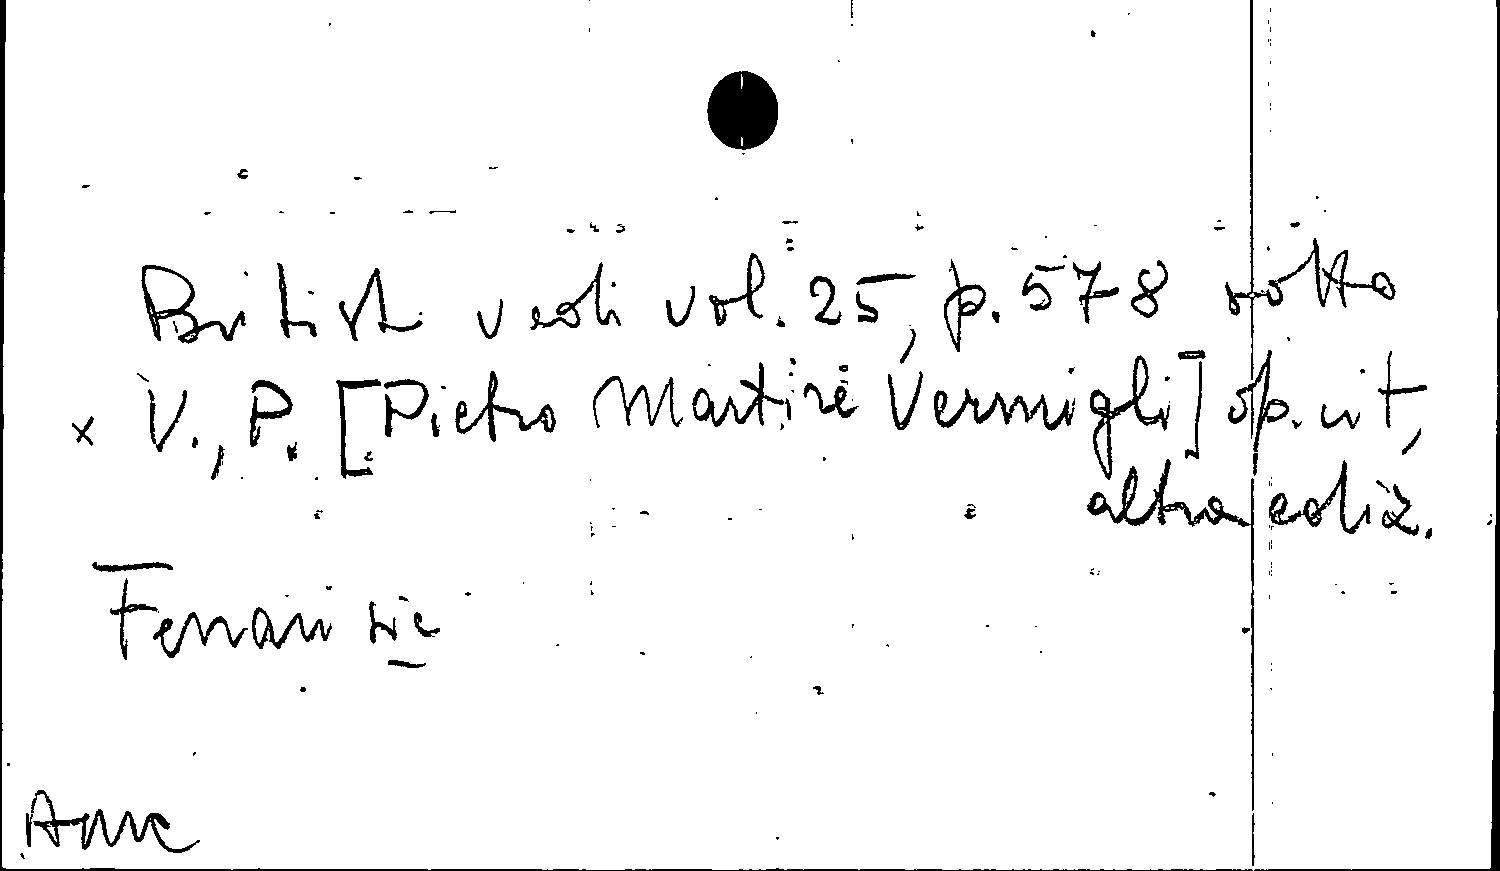 British vedi vol. 25, p. 578 sotto
x V., P. [Pietro Martire Vermigli] op. cit,
altra ediz.
Ferrari sic